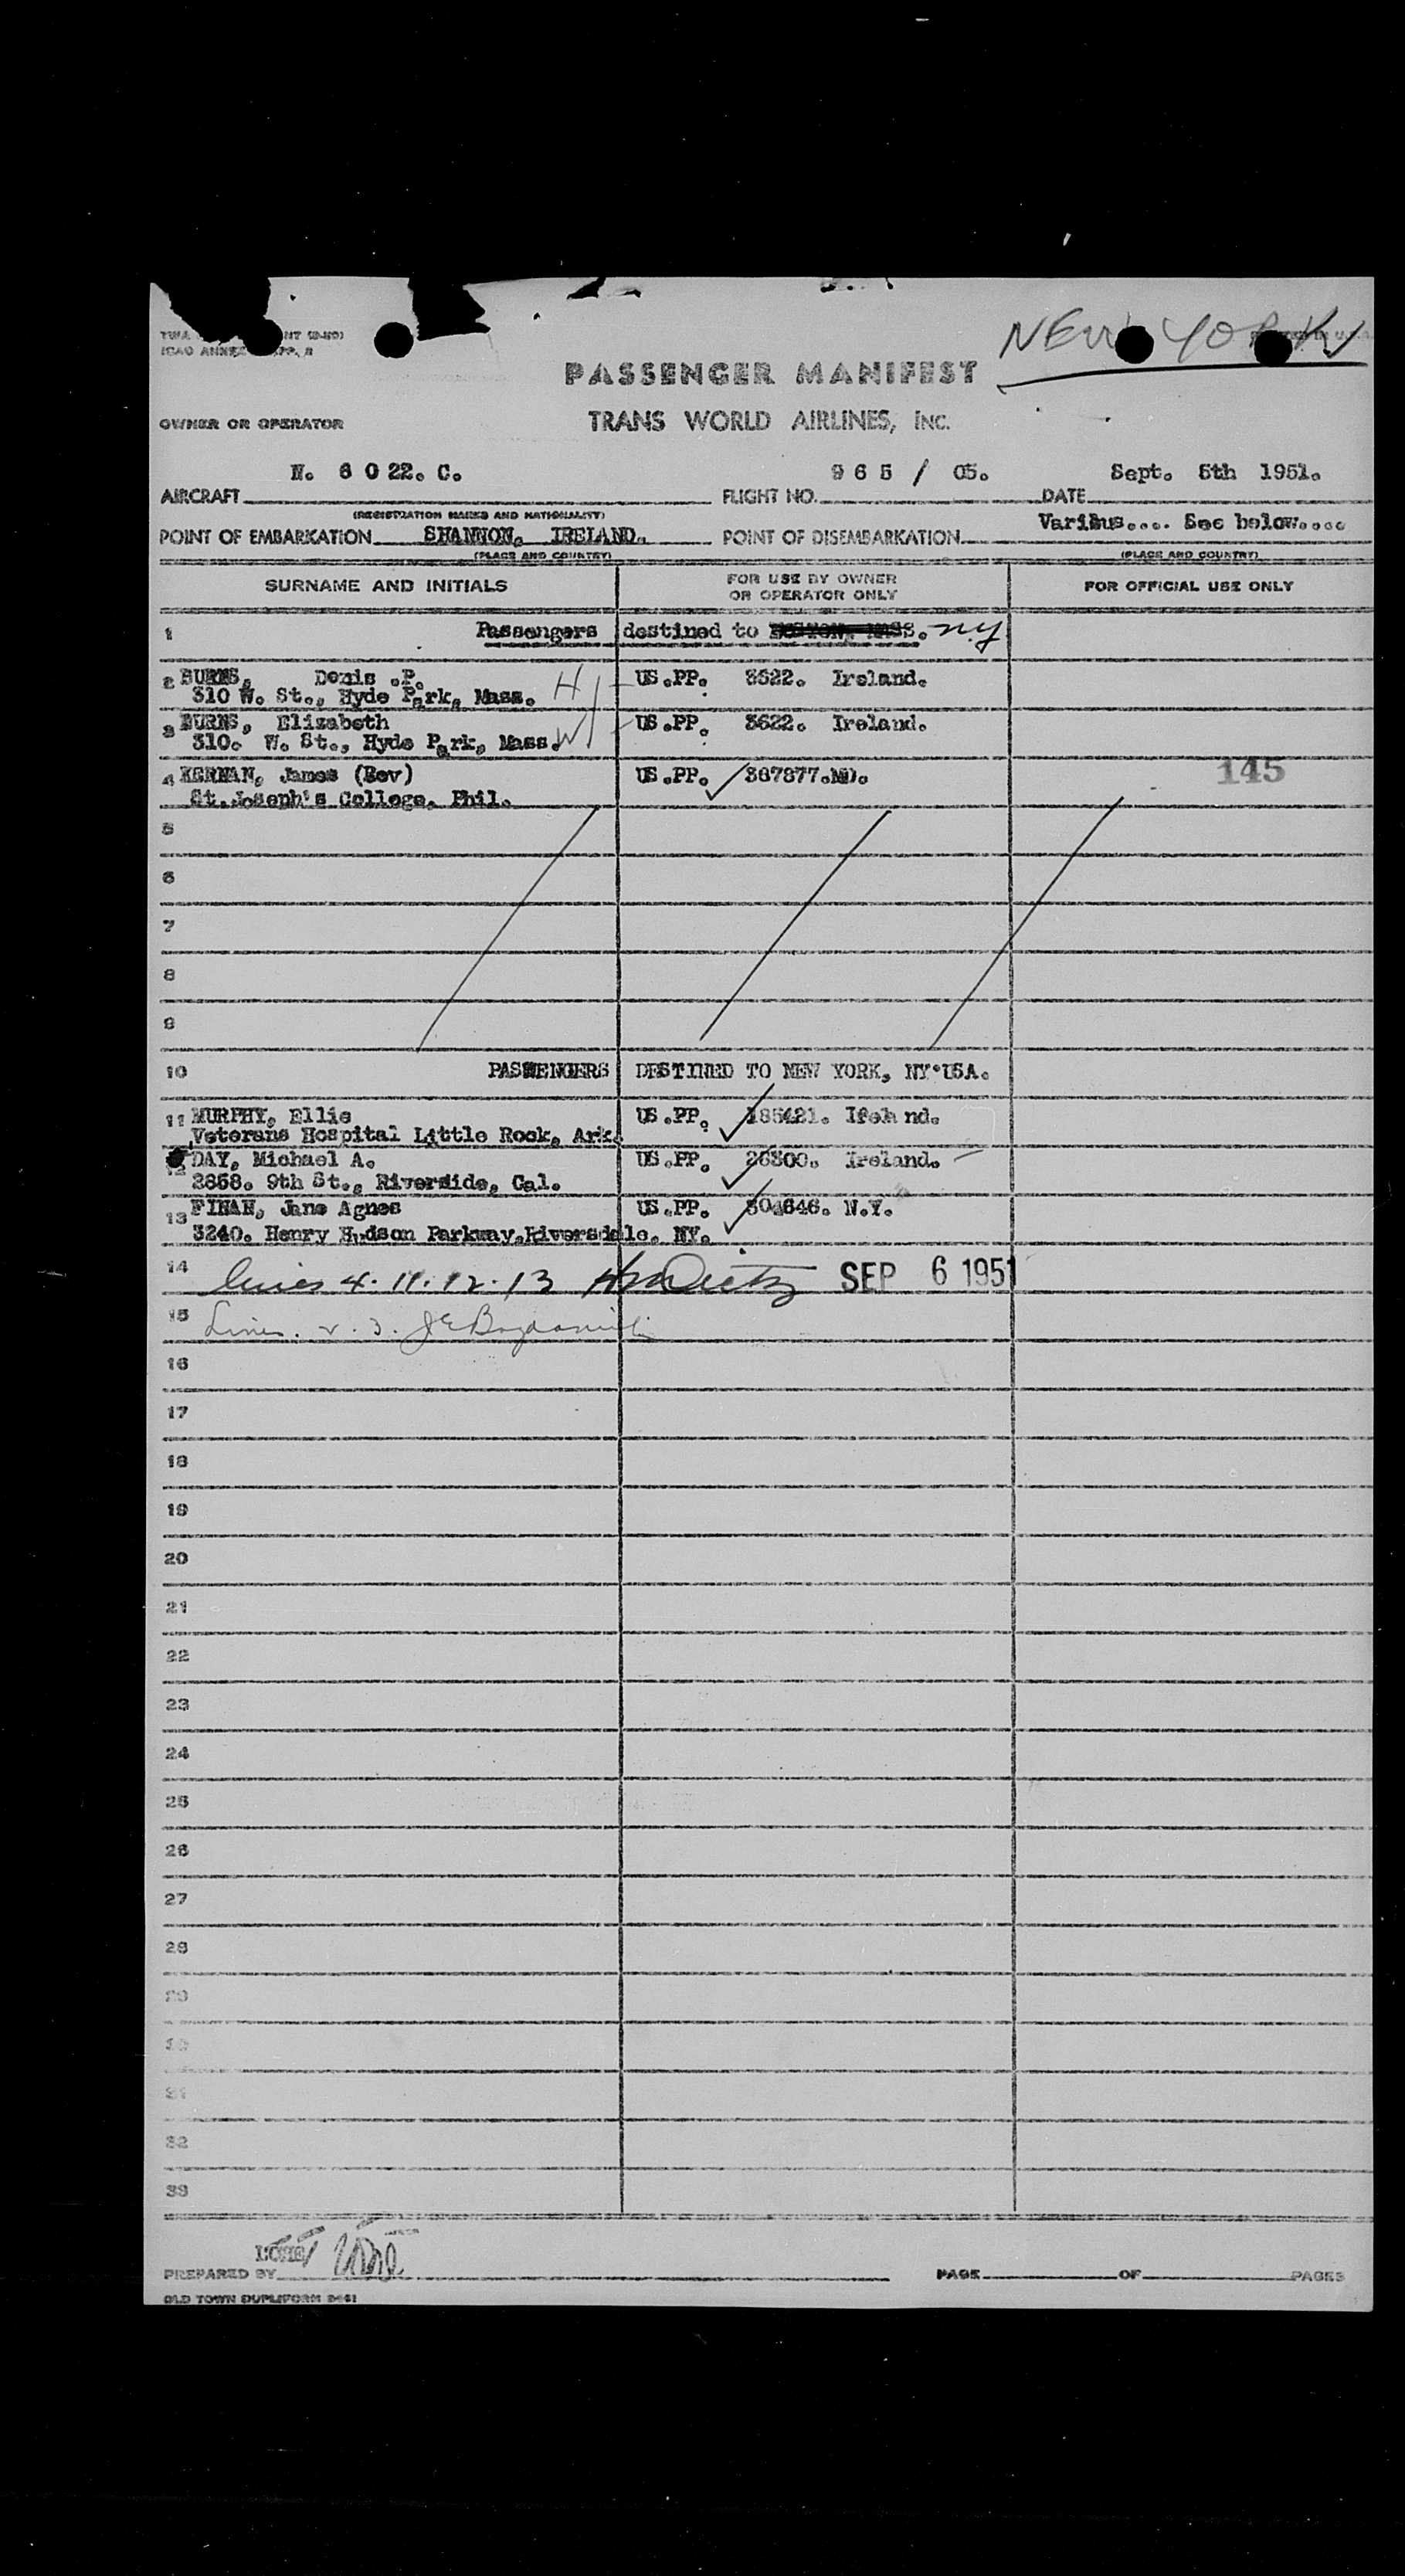 ICAO ANNEX
NEW YORK
PASSENGER MANIFEST
OWNER OR OPERATOR TRANS WORLD AIRLINES, INC.
N. 6 0 22. C. 9 6 5 / 05. Sept. 5th 1951.
AIRCRAFT FLIGHT NO. DATE
(REGISTRATION MARKS AND NATIONALITY) Various.... See below....
POINT OF EMBARKATION SHANNON. IRELAND. POINT OF DISEMBARKATION
(PLACE AND COUNTRY) (PLACE AND COUNTRY)
SURNAME AND INITIALS FOR USE BY OWNER OR OPERATOR ONLY FOR OFFICIAL USE ONLY
1 Passengers destined to BOSTON, MASS. NY
2 BURNS, Denis .P. H US.PP. 3622. Ireland.
310 W. St., Hyde Park, Mass.
3 BURNS, Elizabeth W US.PP. 3622. Ireland.
310. W. St., Hyde Park, Mass.
4 KERNAN, James (Rev) US.PP. 367877.MD. 145
St.Joseph's College. Phil.
5
6
7
8
9
10 PASSENGERS DESTINED TO NEW YORK, NY USA.
11 MURPHY, Ellie US.PP. 185421.
Veterans Hospital Little Rock, Ark.
12 DAY, Michael A. US.PP. Ireland.
2868. 9th St., Riverside, Cal.
13 FINAN, Jane Agnes US.PP. 504646. N.Y.
3240. Henry Hudson Parkway.Riversdale. NY.
14 Lines 4. 11. 12. 13 SEP 6 1951
15 Lines. 2. 3.
16
17
18
19
20
21
22
23
24
25
26
27
28
29
30
31
32
33
PREPARED BY PAGE OF PAGES
OLD TOWN DUPLIFORM